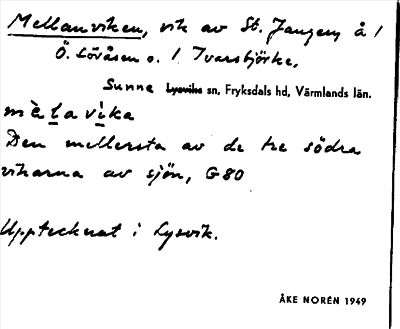 Mellanviken, vik av St. Jangen å 1
Ö. Lövåsen o. 1 Ivarsbjörke,
Sunne Lysviks sn, Fryksdals hd, Värmlands län.
mèlavika
Den mellersta av de tre södra
vikarna av sjön, G80
Upptecknat i Lysvik.
ÅKE NORÉN 1949